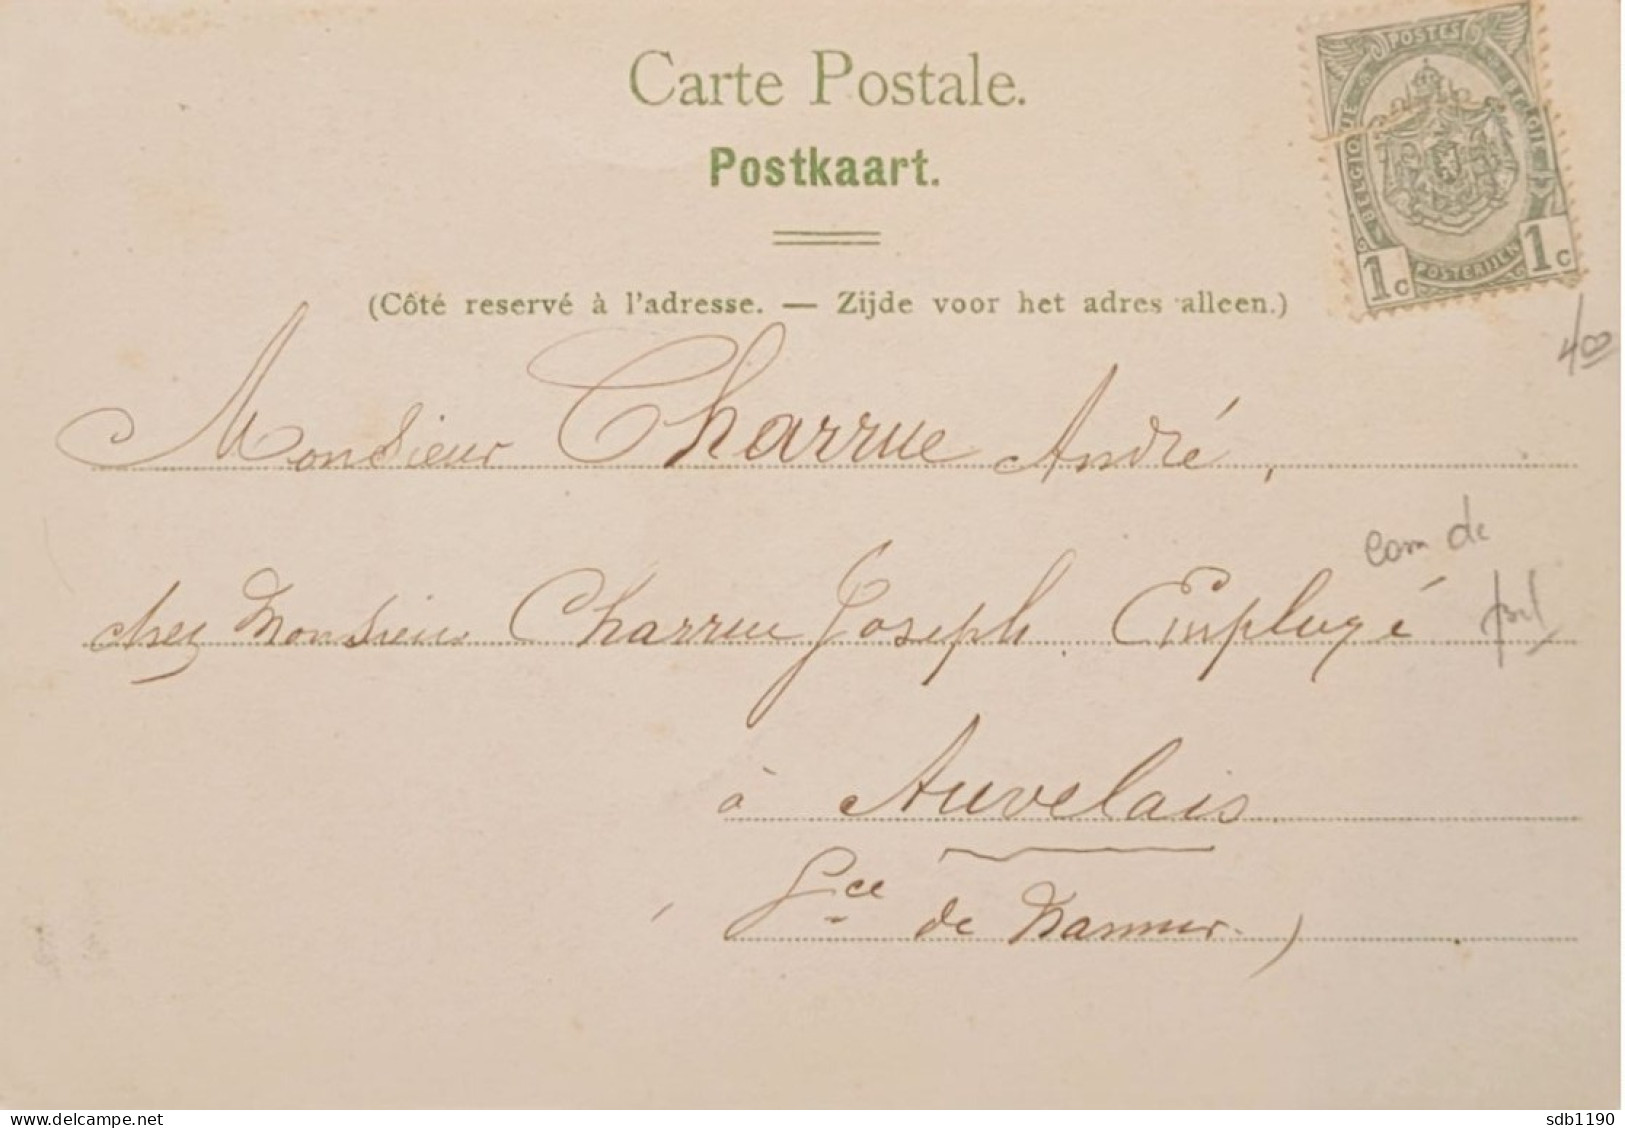 Carte Postale.
Postkaart.
POSTES
BELGIQUE
BELGIË
POSTERIJEN
1c 1c
(Côté reservé à l'adresse. — Zijde voor het adres alleen.)
400
Monsieur Charrue André,
com de
chez Monsieur Charrue Joseph Employé
à Auvelais
Pce de Namur.)
www.delcampe.net
sdb1190